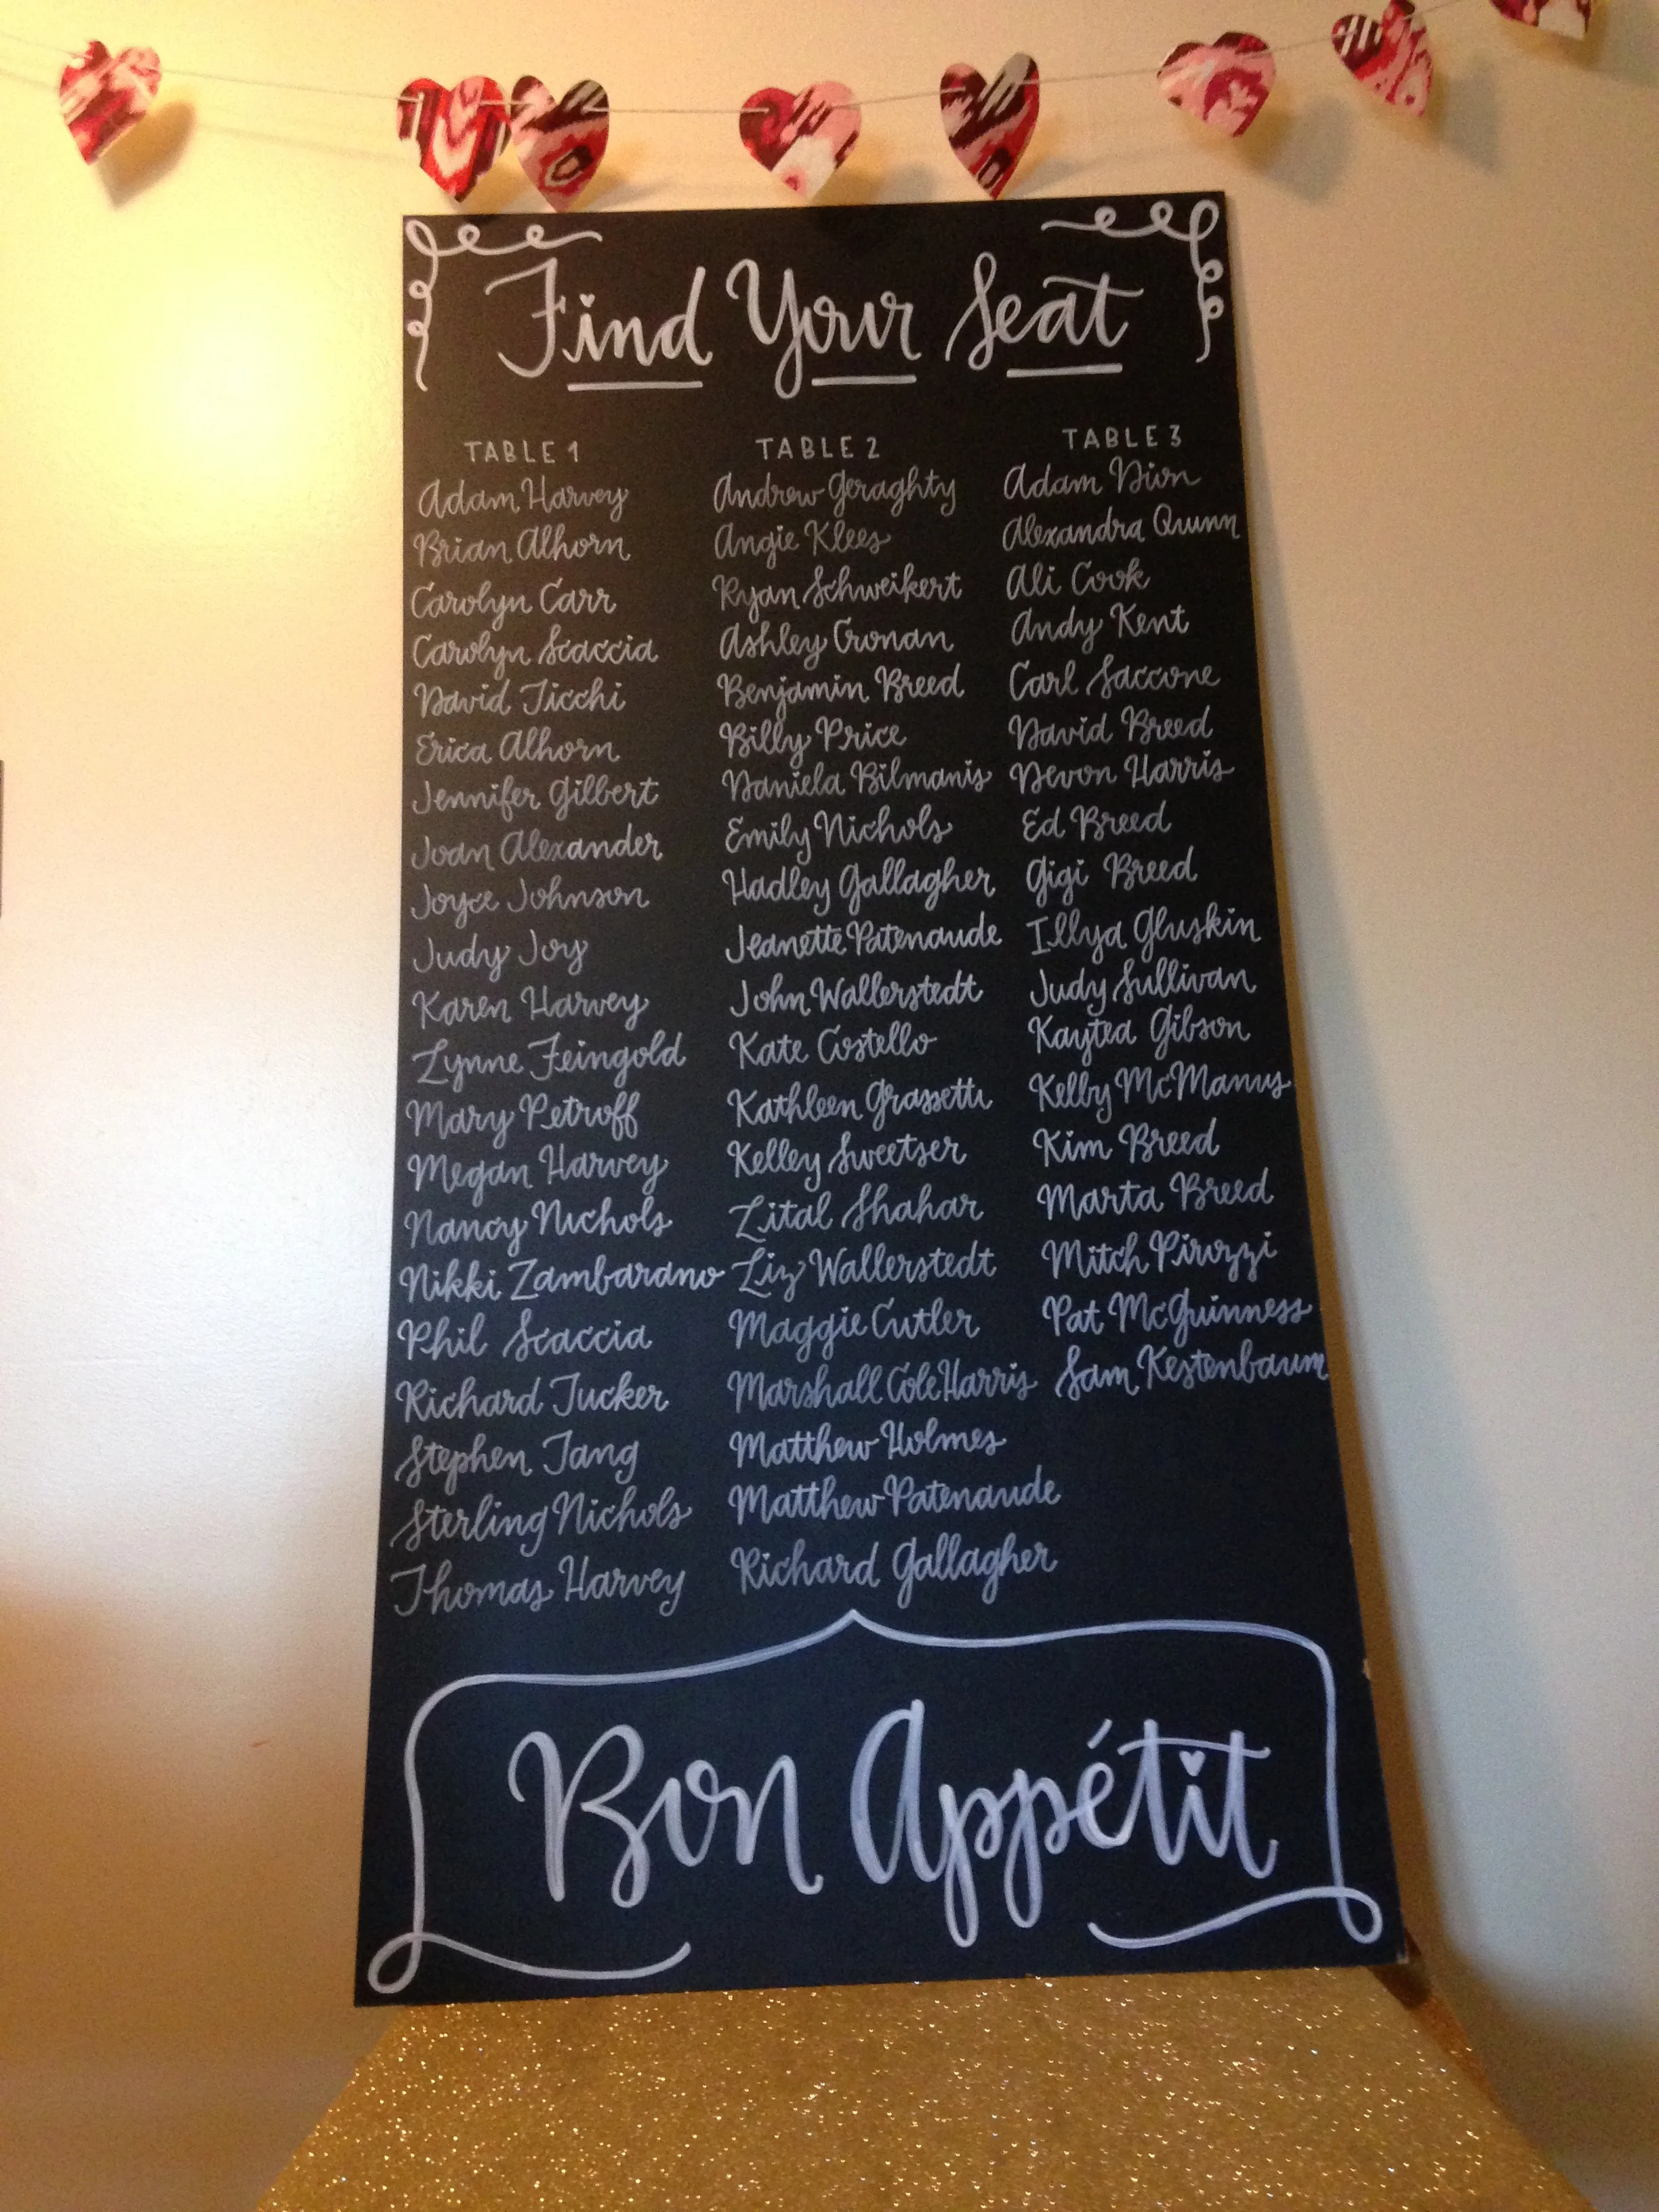 Find Your Seat
TABLE 1
Adam Harvey
Brian Alhorn
Carolyn Carr
Carolyn Scaccia
David Ticchi
Erica Alhorn
Jennifer Gilbert
Joan Alexander
Joyce Johnson
Judy Joy
Karen Harvey
Lynne Feingold
Mary Petroff
Megan Harvey
Nancy Nichols
Nikki Zambarano
Phil Scaccia
Richard Tucker
Stephen Tang
Sterling Nichols
Thomas Harvey
TABLE 2
Andrew Geraghty
Angie Klees
Ryan Schweikert
Ashley Cronan
Benjamin Breed
Billy Price
Daniela Bilmanis
Emily Nichols
Hadley Gallagher
Jeanette Patenaude
John Wallerstedt
Kate Costello
Kathleen Grassetti
Kelley Sweetser
Lital Shahar
Liz Wallerstedt
Maggie Cutler
Marshall Cole Harris
Matthew Holmes
Matthew Patenaude
Richard Gallagher
TABLE 3
Adam Dion
Alexandra Quinn
Ali Cook
Andy Kent
Carl Saccone
David Breed
Devon Harris
Ed Breed
Gigi Breed
Illya Gluskin
Judy Sullivan
Kaytea Gibson
Kelby McManus
Kim Breed
Marta Breed
Mitch Pirozzi
Pat McGuinness
Sam Kestenbaum
Bon Appétit